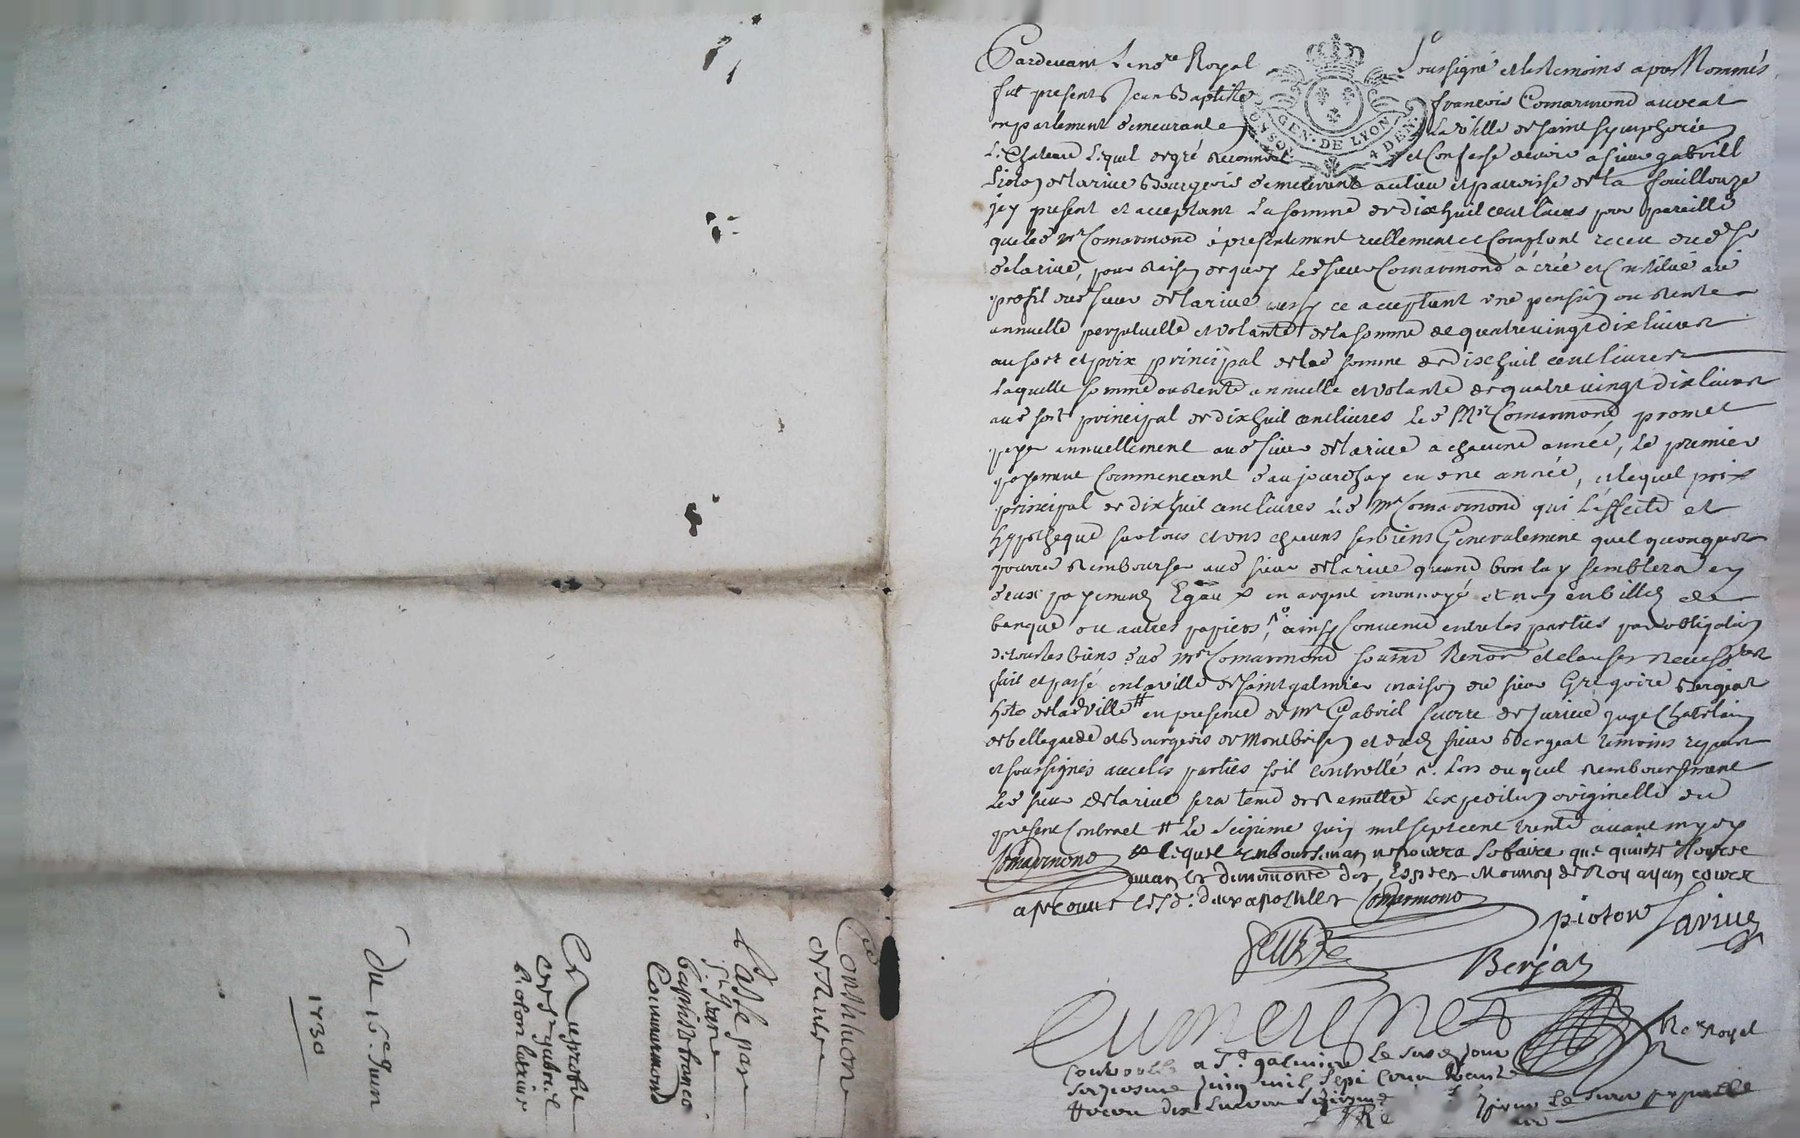 Pardevant Le no.re Royal soussigné et les temoins apres Nommés
fut present Jean Baptiste francois Comarmond avocat
en parlement demeurant en La Ville de saint symphorien
Le Chateau Lequel de gré reconnoit et Confesse devoir a sieur gabriel
Pioton de larive Bourgeois demeurant au lieu et parroisse de la fouillouze
jcy present et acceptant La somme de dixhuit cent livres pour pareille
que led. Mr Comarmond à presentement reellement et Comptant receu dud. Sr
delarive, pour raison de quoy Led. sieur Comarmond à créé et Constitué au
profit dud. sieur de larive aussy ce acceptant une pension ou rente
annuelle perpetuelle et volante de la somme de quatrevingt dix livres
au sort et prix principal de lad. somme de dixhuit cent livres
Laquelle somme ou rente annuelle et volante de quatre vingt dix livres
aud. sort principal de dixhuit cent livres Led. Mr Comarmond, promet
payer annuellement aud. sieur de larive a chacune année, Le premier
payement Commencant d'aujourdhuy en une année, et lequel prix
principal de dixhuit cent livres Led. Mr Comarmond qui L'affecte et
hypotheque sur tous et uns chacuns ses biens Generalement quelquonques
pourra rembourser aud. sieur delarive quand bon luy semblera en
deux payements Egaux en argent monnoyé et non en billets de
banque ou autres papiers, ainsy Convenu entre les parties par obligation
de tous les biens dud. Mr Comarmond soumis Renon. et clauses necess.res
fait et passé en la ville de saint galmier maison de sieur Grégoire Bergeat
hote de lad. ville # en presence de Mr Gabriel
de bellegarde et Bourgeois de Montbrison et dud. sieur Bergeat temoins requis
et soussignés avec les parties soit controllé &. Lors duquel remboursement
Led. sieur delarive sera tenu de Remettre L'expedition originelle du
present Contract # Le seizieme juin mil sept cent trente avant midy
Comarmond & lequel ranboursman ne pourra se faire que
aprouvé Comarmond
pioton Larive
Berjat
no.re Royal
Controllé a St galmier Le
juin mil sept cent trante
Constitution
de Rente
Passé par
Sr Jean
Baptiste francois
Commarmond
Au profit
de Sr gabriel
pioton larive
Du 15e Juin
1730
GEN. DE LYON
4 DEN.